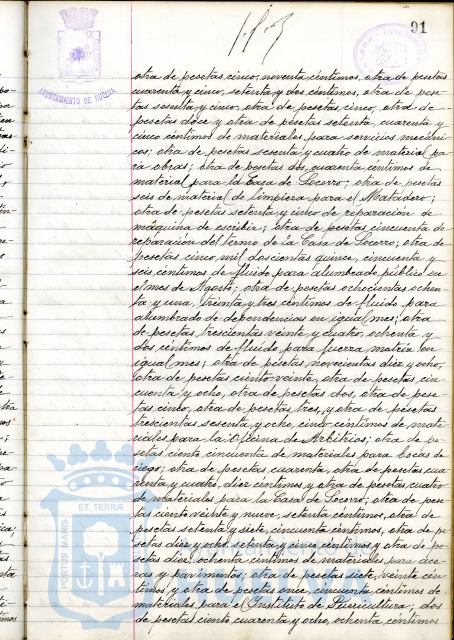 91
AYUNTAMIENTO DE HUELVA
otra de pesetas, cinco, noventa céntimos, otra de pesetas
cuarenta y cinco, setenta y dos céntimos, otra de pese-
tas sesenta y cinco, otra de pesetas cinco, otra de
pesetas doce y otra de pesetas setenta, cuarenta y
cinco céntimos de materiales para servicios mecáni-
cos; otra de pesetas sesenta y cuatro de material pa-
ra obras; otra de pesetas dos, cuarenta céntimos de
material para la Casa de Socorro; otra de pesetas
seis de material de limpieza para el Matadero;
otra de pesetas setenta y cinco de reparación de
máquina de escribir; otra de pesetas cincuenta de
reparación del termo de la Casa de Socorro; otra de
pesetas cinco mil doscientas quince, cincuenta y
seis céntimos de fluido para alumbrado público en
el mes de Agosto; otra de pesetas ochocientas ochen-
ta y una, treinta y tres céntimos de fluido para
alumbrado de dependencias en igual mes; otra
de pesetas, trescientas veinte y cuatro, ochenta y
dos céntimos de fluido para fuerza motriz en
igual mes; otra de pesetas novecientas diez y ocho,
otra de pesetas ciento veinte, otra de pesetas cin
cuenta y ocho, otra de pesetas dos, otra de pese-
tas cinco, otra de pesetas tres, y otra de pesetas
trescientas sesenta y ocho, cinco céntimos de mate
riales para la Oficina de Arbitrios; otra de pe-
setas ciento cincuenta de materiales para bocas de
riego; otra de pesetas cuarenta, otra de pesetas cua
renta y cuatro, diez céntimos y otra de pesetas cuatro
de materiales para la Casa de Socorro; otra de pese
tas ciento veinte y nueve, setenta céntimos, otra de
pesetas setenta y siete, cincuenta céntimos, otra de pe
setas diez y ocho, setenta y cinco céntimos y otra de pe-
setas diez, ochenta céntimos de materiales para ace-
ras y pavimentos; otra de pesetas siete, veinte cén-
timos y otra de pesetas once, cincuenta céntimos de
materiales para el Instituto de Puericultura; dos
de pesetas ciento cuarenta y ocho, ochenta céntimos
PORTUS MARIS ET TERRÆ